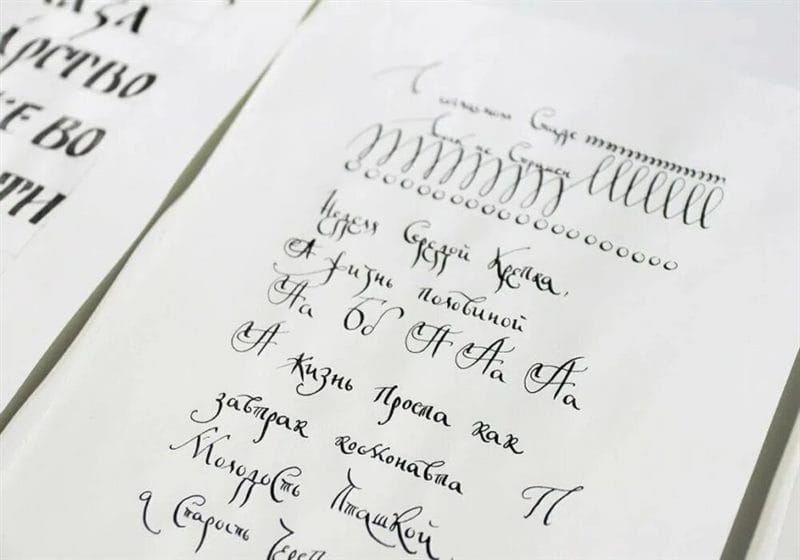 АЗА
АРСТВО
Е ВО
ТИ
Неделя Середой Крепка,
А жизнь половиной
Аа Бб А Аа Аа
А жизнь проста как
завтрак космонавта П
Молодость Пташкой,
а Старость Череп